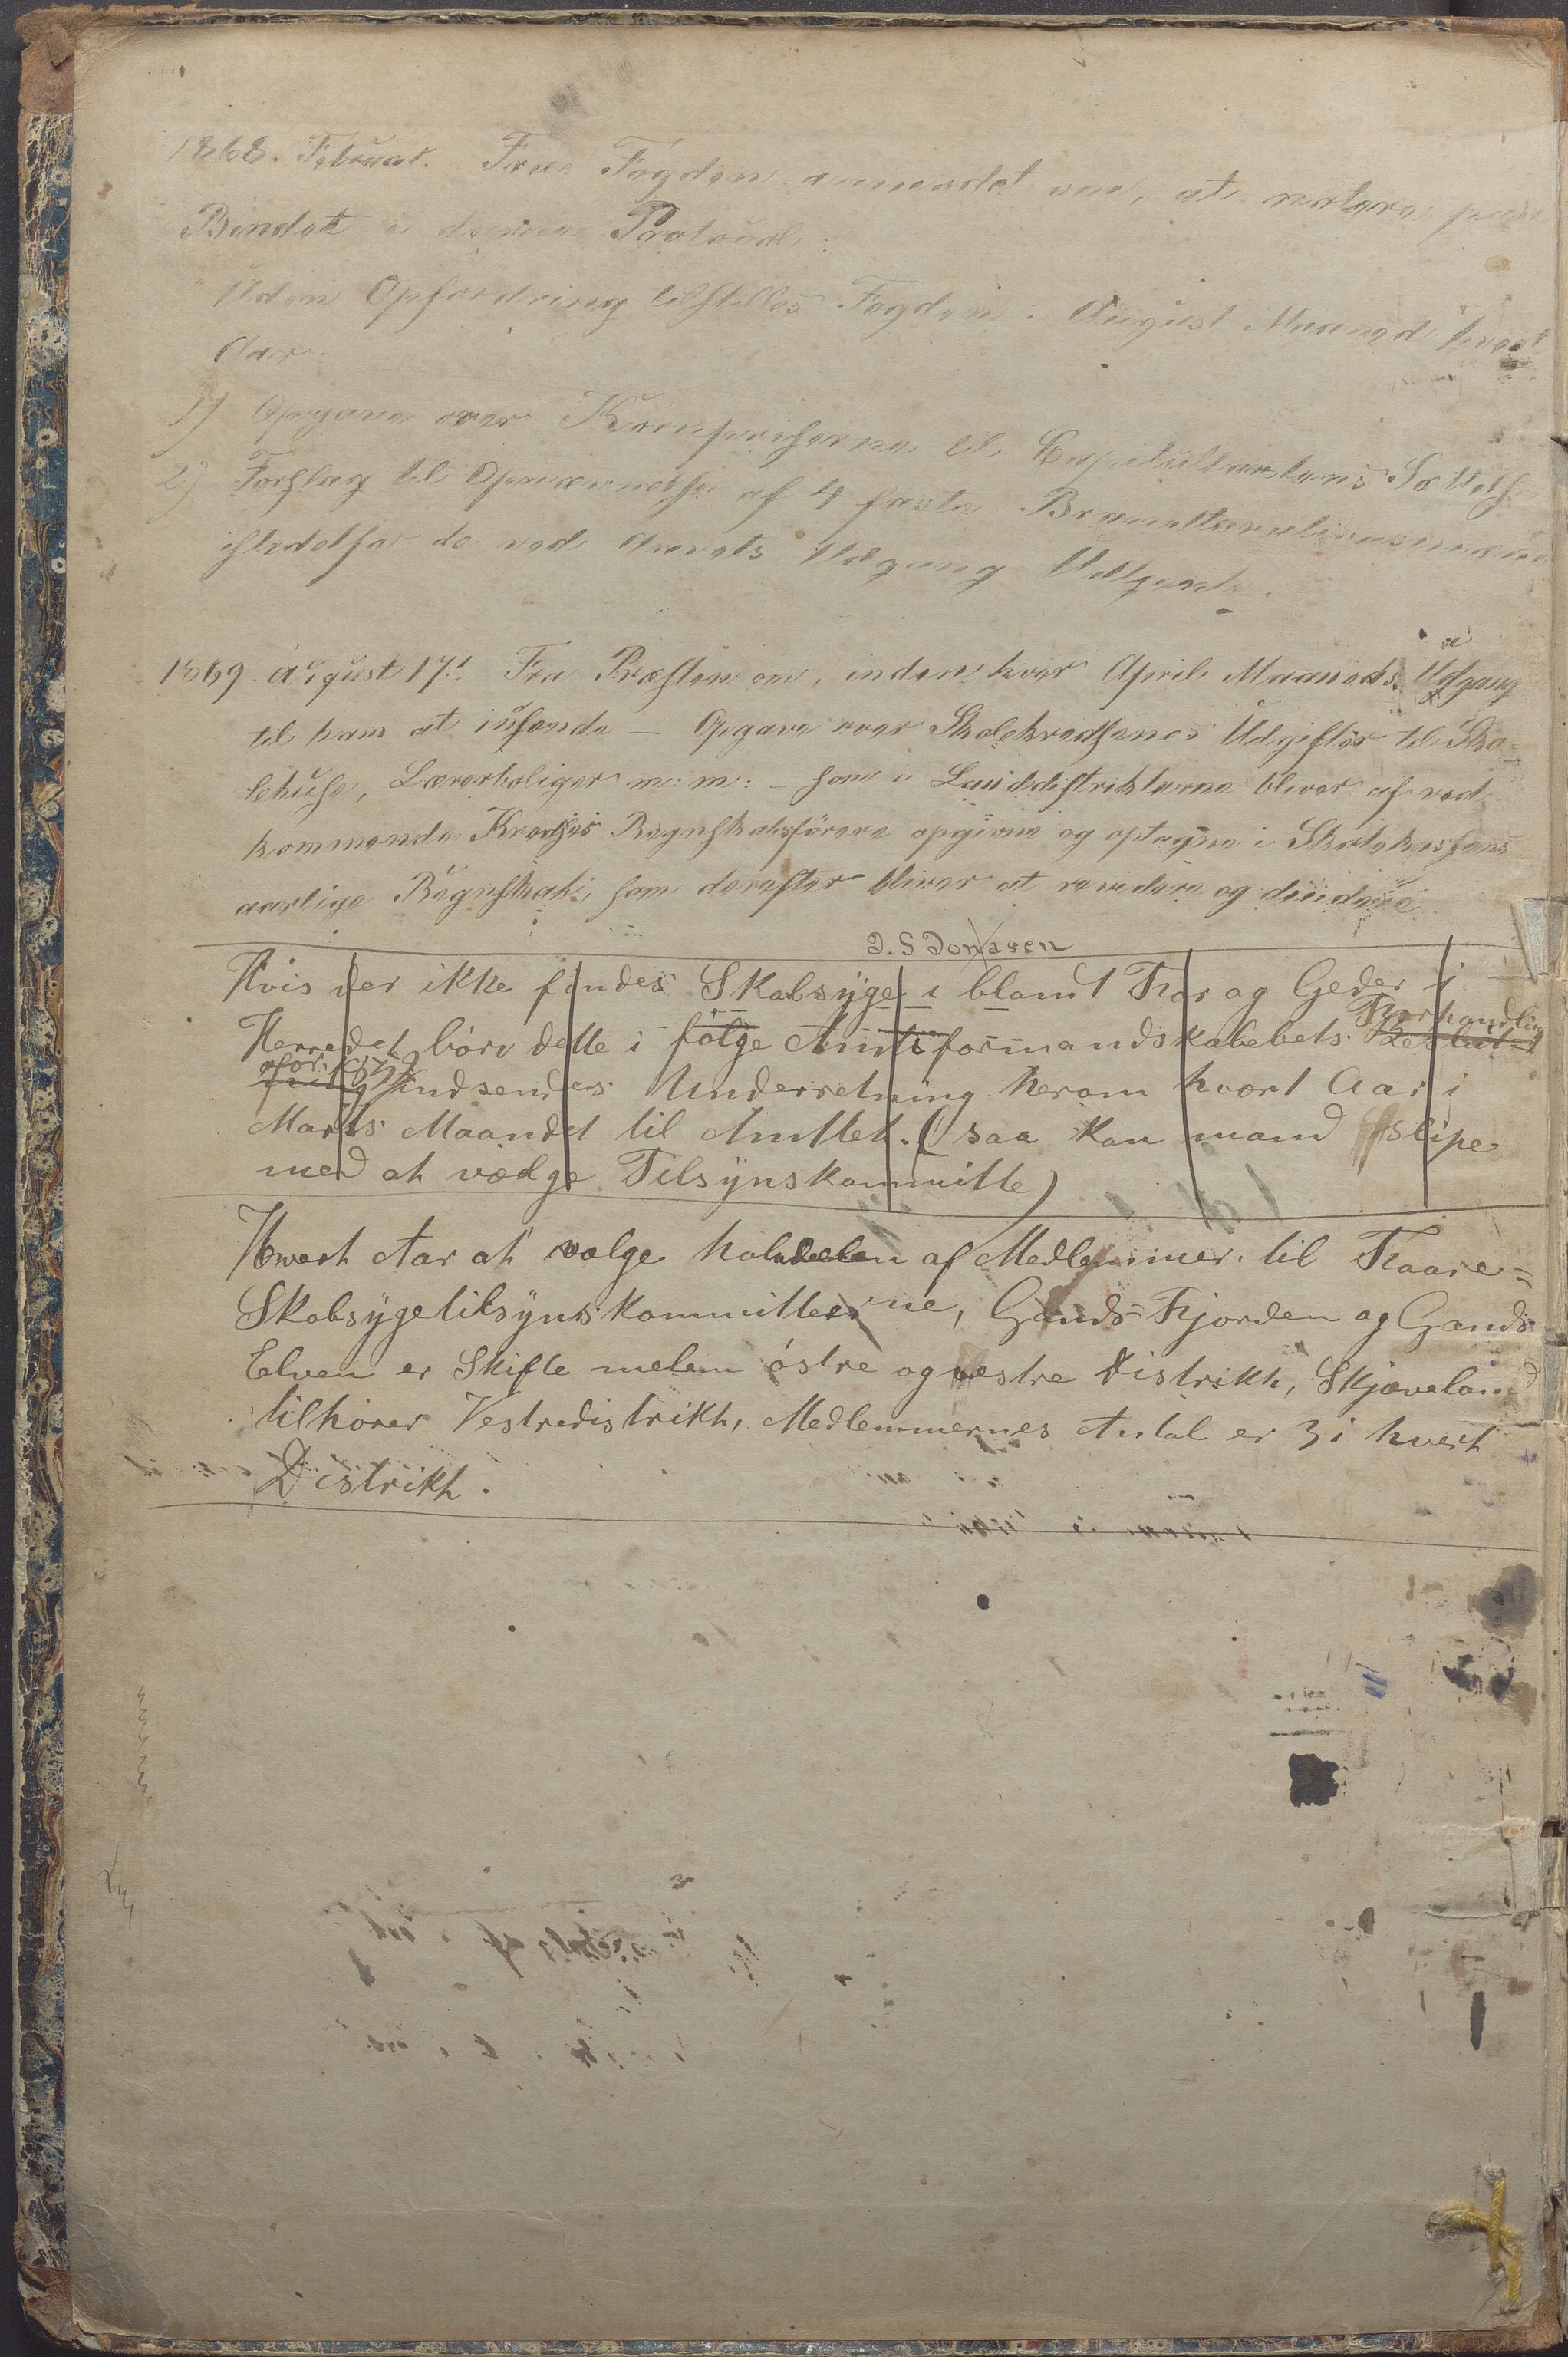 1868. Februar. Fra Fogden anmodet om, at notere paa
Bindet i denne Protocol:
"Uden Opfordring tilstilles Fogden i August Maaned hvert
Aar:
1) Opgave over Kornpriserne til Capitulstaxtens Sættelse
2) Forslag til Opnævnelse af 4 faste Brandtaxtionsmænd
istedetfor de ved Aarets Udgang Udtrædende.
1869. August 17d. Fra Præsten om, inden hver April Maaneds Udgang
til ham at indsende – Opgave over Skolekredsenes Udgifter til Sko-
lehuse, Lærerboliger m: m: – som i Landdistrikterne bliver af ved-
kommende Kredses Regnskabsførere opgivne og optagne i Skolekassens
aarlige Regnskab, som derefter bliver at revidere og decidere
J. S Jonasen
Hvis der ikke findes Skabsyge i blant Faar og Geder i
Herredet, bør dette i følge Amtsformandskabebets Beslut Forhandling
for indsendes Underretning herom hvert Aar i
Marts Maandet til Amttet. (saa kan mand slipe
med at vædge Tilsynskommitte)
Hvert Aar at vælge halvdelen af Medlemmer til Faare=
Skabsygetilsynskommitteerne, Gands-Fjorden og Gands
Elven er Skifte melem østre og vestre Distrikt, Skjæveland
tilhører Vestredistrikt, Medlemmernes Antal er 3 i hvert
Distrikt.